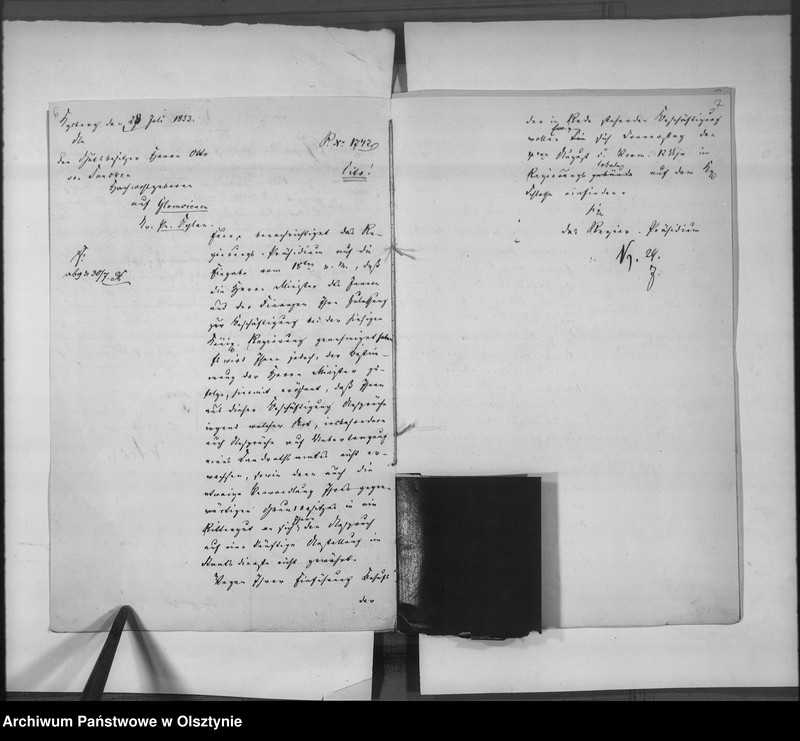 Kgsberg den 28 Juli 1853.
An
den Gutsbesitzer Herrn Otto
von
Hochwohlgeboren
auf
Kr. Pr. Eylau.
P. No. 1742
Cito!
abg d 30/7.
Euer benachrichtigt das Re-
gierungs-Präsidium auf die
Eingabe vom 18ten v. M., daß
die Herrn Minister des Innern
und der Finanzen Ihre Zulassung
zur Beschäftigung bei der hiesigen
Königl. Regierung genehmigt haben.
Es wird Ihnen jedoch, der Bestim-
mung der Herrn Minister zu-
folge, hiermit eröffnet, daß Ihnen
aus dieser Beschäftigung Ansprüche
irgend welcher Art, insbesondere
auch Ansprüche auf Uebertragung
eines Landrathsamtes nicht er-
wachsen, sowie denn auch die
etwaige Verwandlung Ihres gegen-
wärtigen Grundbesitzes in ein
Rittergut an sich den Anspruch
auf eine künftige Anstellung im
Staatsdienste nicht gewährt.
Wegen Ihrer Einführung Behufs
der
7
der in Rede stehenden Beschäftigung
wollen Sie sich Donnerstag den
4ten August d. J. Vorm. 12 Uhr im
Regierungs gebäude auf dem
Schlosse einfinden.
Das Regier.-Präsidium
Archiwum Państwowe w Olsztynie